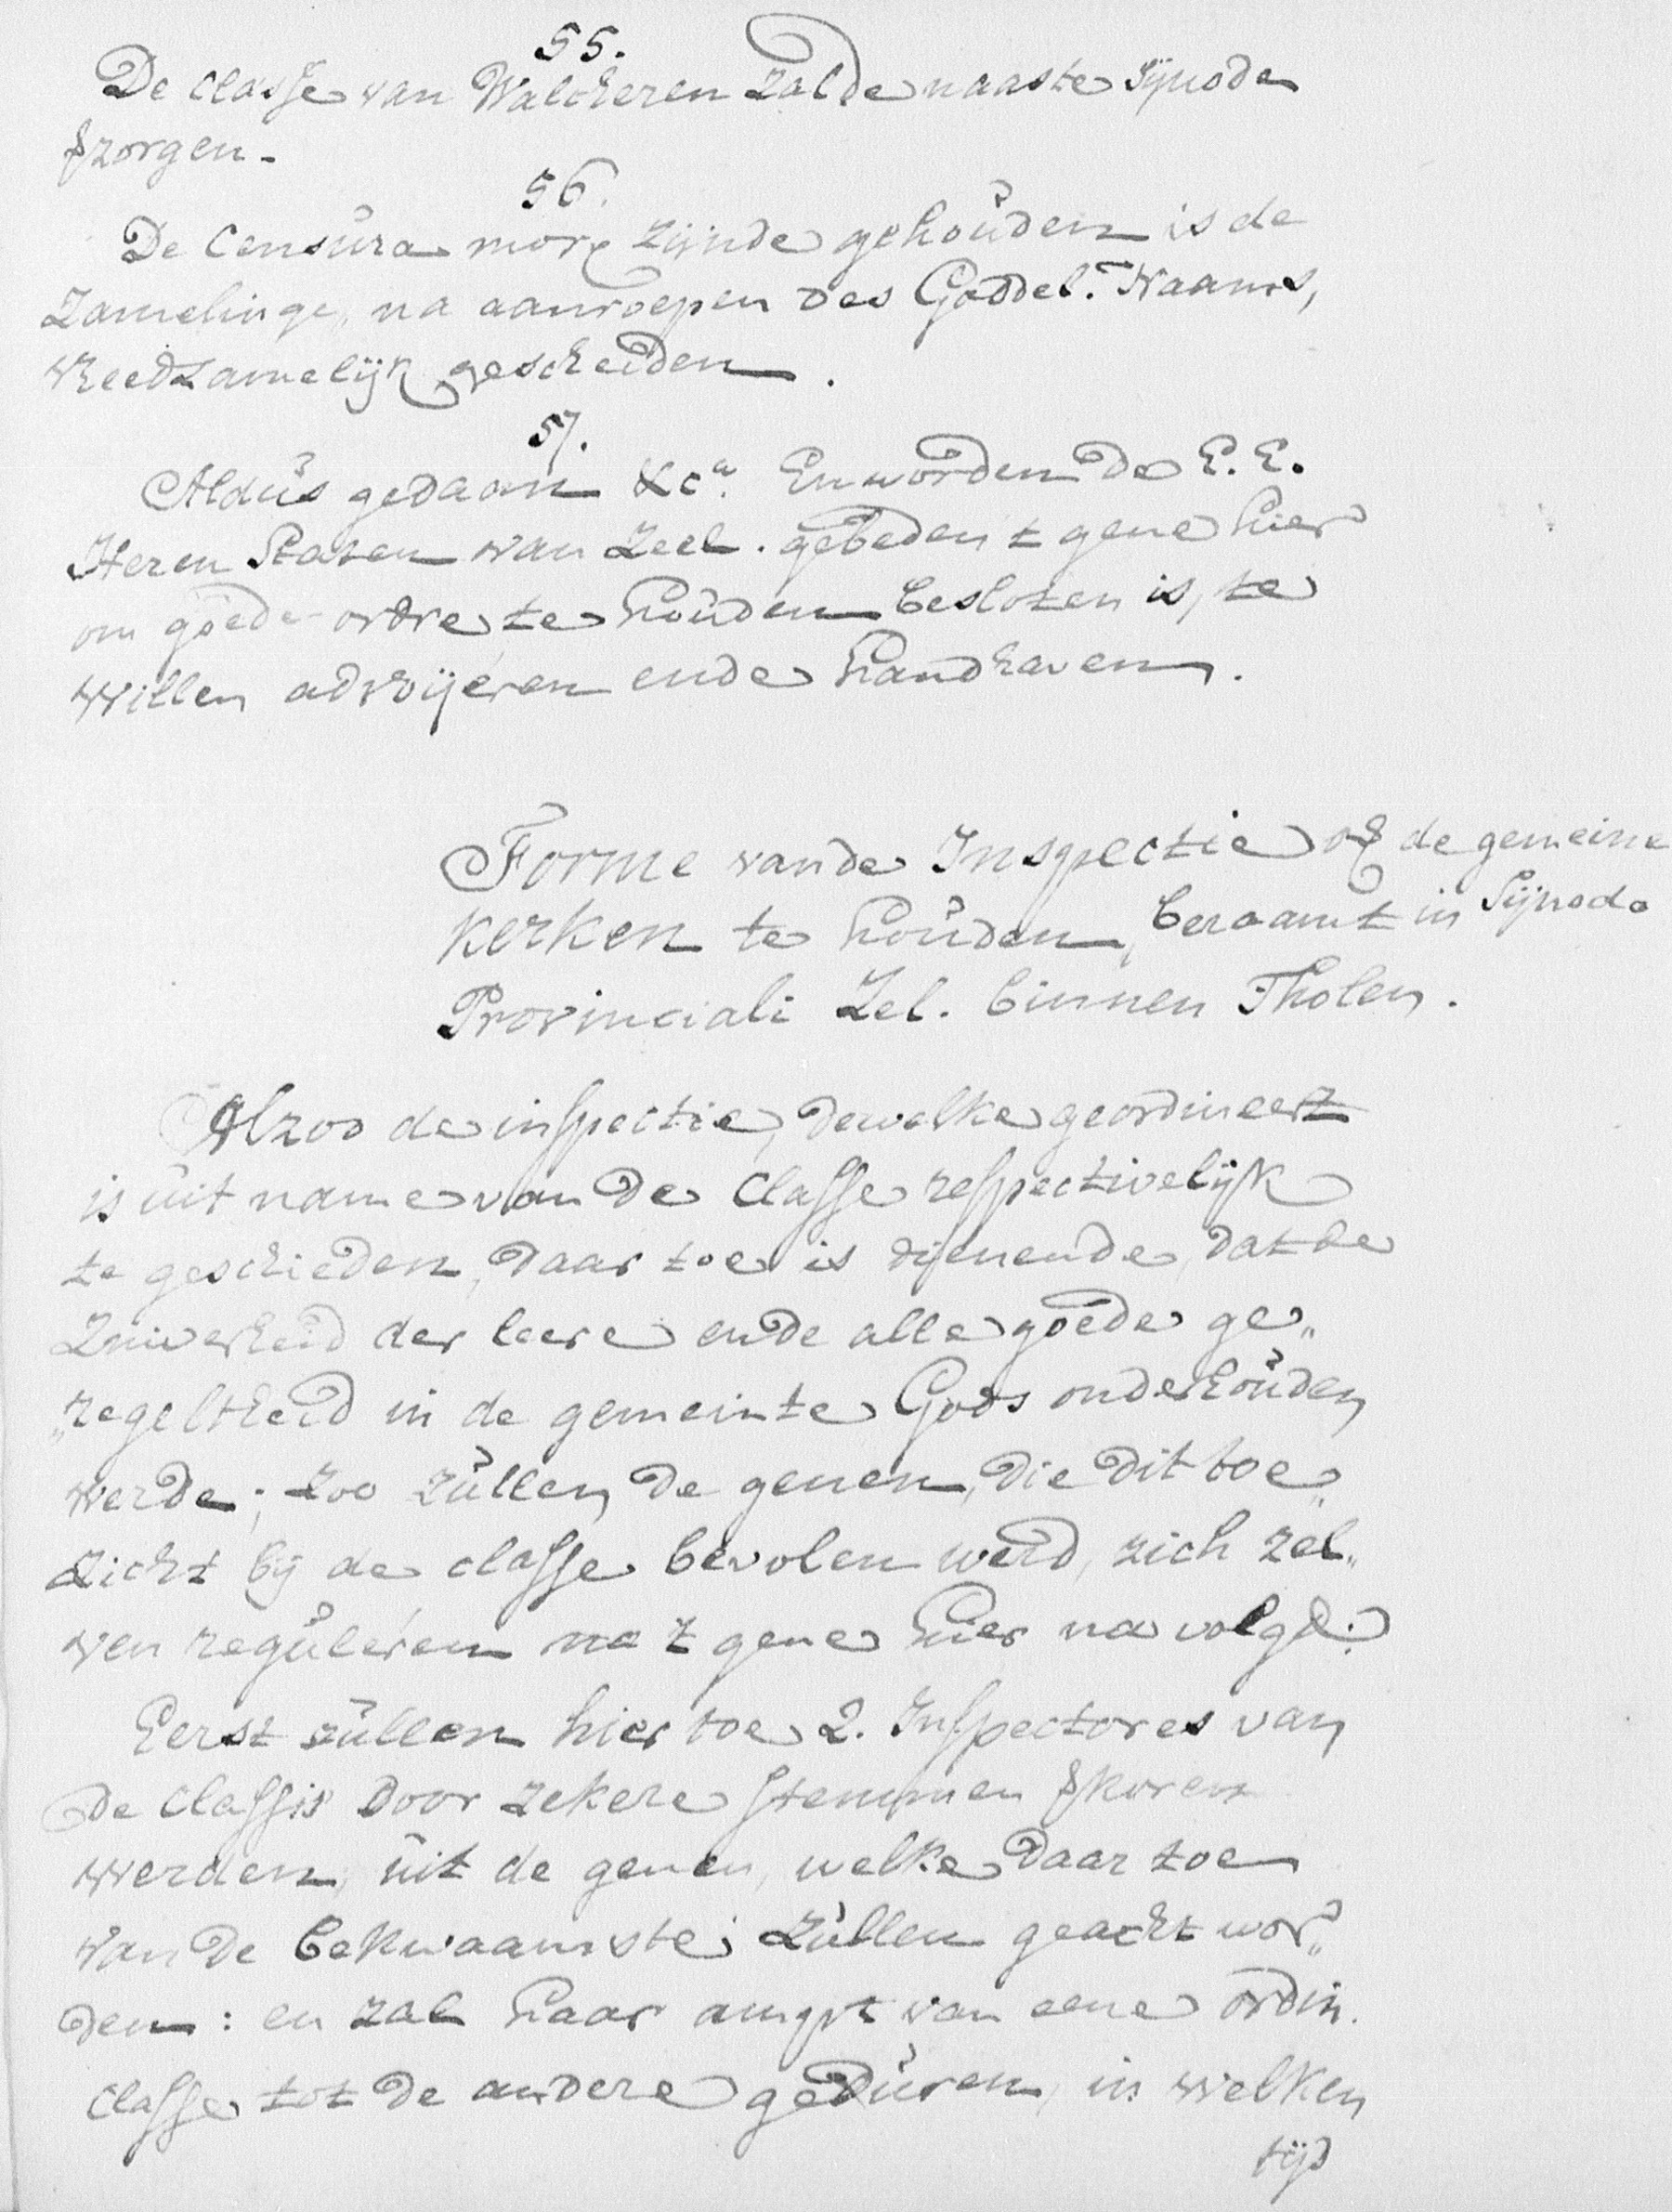 55.
De classe van Walcheren zal de naaste Sÿnode
bezorgen.
56.
De Censura mor. zijnde gehouden is de
Zamelinge, na aanroepen des Goddel. Naams,
vreedzamelijk gescheiden.
57.
Aldus gedaan &ca. En worden de E. E.
Heren Staten van Zeel. gebeden t gene hier
om goede ordre te houden besloten is, te
willen advoÿeren ende handhaven.
Forme van de Inspectie op de gemeine
Kerken te houden, beraamt in Sÿnodo
Provinciali Zel. binnen Tholen.
Alzoo de inspectie, dewelke geordineert
is uit name van de Classe respectivelijk
te geschieden, daar toe is dienende, dat de
Zuiverheid der leere ende alle goede ge„
„regeltheid in de gemeinte Gods onderhouden
werde; zoo zullen de genen, die dit toe„
zicht bij de classe bevolen werd, zich zel„
ven reguleren na t gene hier na volgd:
Eerst zullen hier toe 2. Inspectores van
de Classis door zekere stemmen bekoren
werden, uit de genen, welke daar toe
van de bekwaamste zullen geacht wor„
den: en zal haar ampt van eene ordin.
Classe tot de andere geduren, in welken
tijd